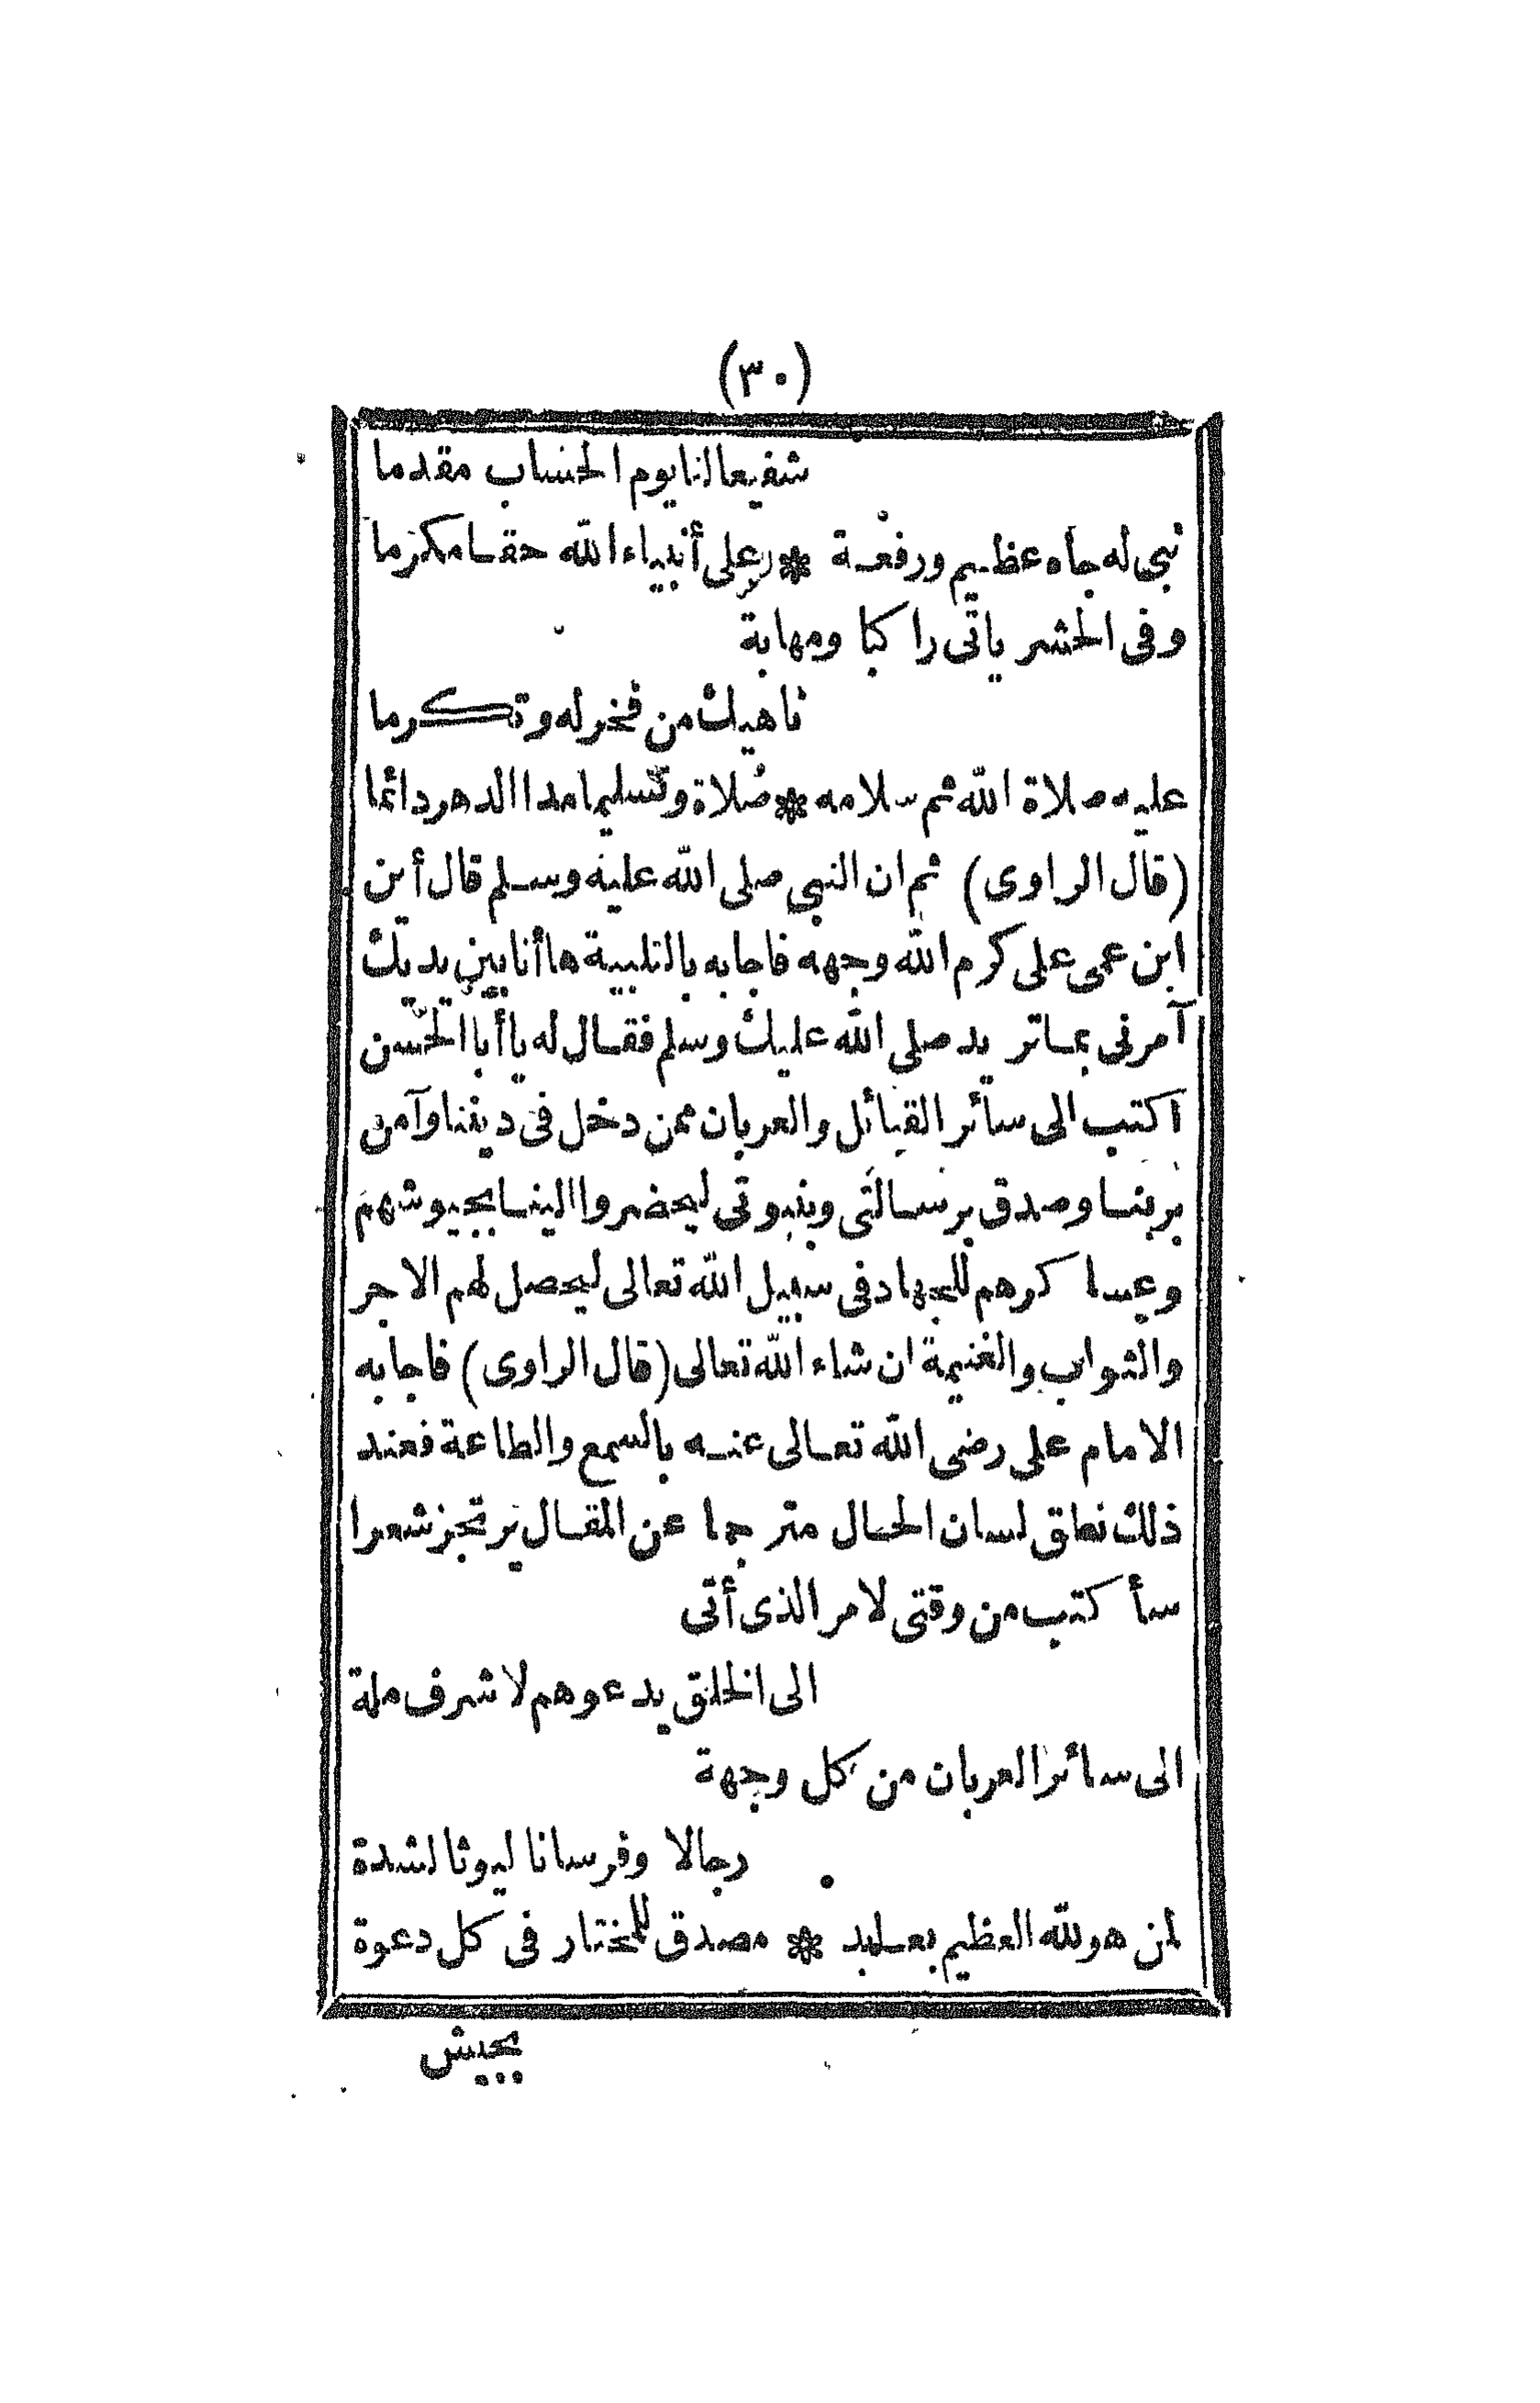 (٣٠)
شفيعا لنا يوم الحساب مقدما
نبي له جاه عظيم ورفعة * وعلى أنبياء الله حقا مكرما
وفى الحشر ياتى راكبا ومهابة
ناهيك من فخر له وتكرما
عليه صلاة الله ثم سلامه * صلاة وتسليما مدا الدهر دائما
(قال الراوى) ثم ان النبى صلى الله عليه وسلم قال أين
ابن عمى على كرم الله وجهه فاجابه بالتلبية ها أنا بين يديك
آمرنى بما تريد صلى الله عليك وسلم فقال له يا أبا الحسن
اكتب الى سائر القبائل والعربان ممن دخل فى ديننا وآمن
بربنا وصدق برسالتى وبنبوتى ليحضروا الينا بجيوشهم
وعسا كرهم للجهاد فى سبيل الله تعالى ليحصل لهم الاجر
والثواب والغنيمة ان شاء الله تعالى (قال الراوى) فاجابه
الامام على رضى الله تعالى عنه بالسمع والطاعة فعند
ذلك نطق لسان الحال مترجما عن المقال يرتجز شعرا
سأكتب من وقتى لامر الذى أتى
الى الخلق يدعوهم لاشرف ملة
الى سائر العربان من كل وجهة
رجالا وفرسانا ليوثا لشدة
لمن هو لله العظيم بعابد * مصدق للمختار فى كل دعوة
بجيش